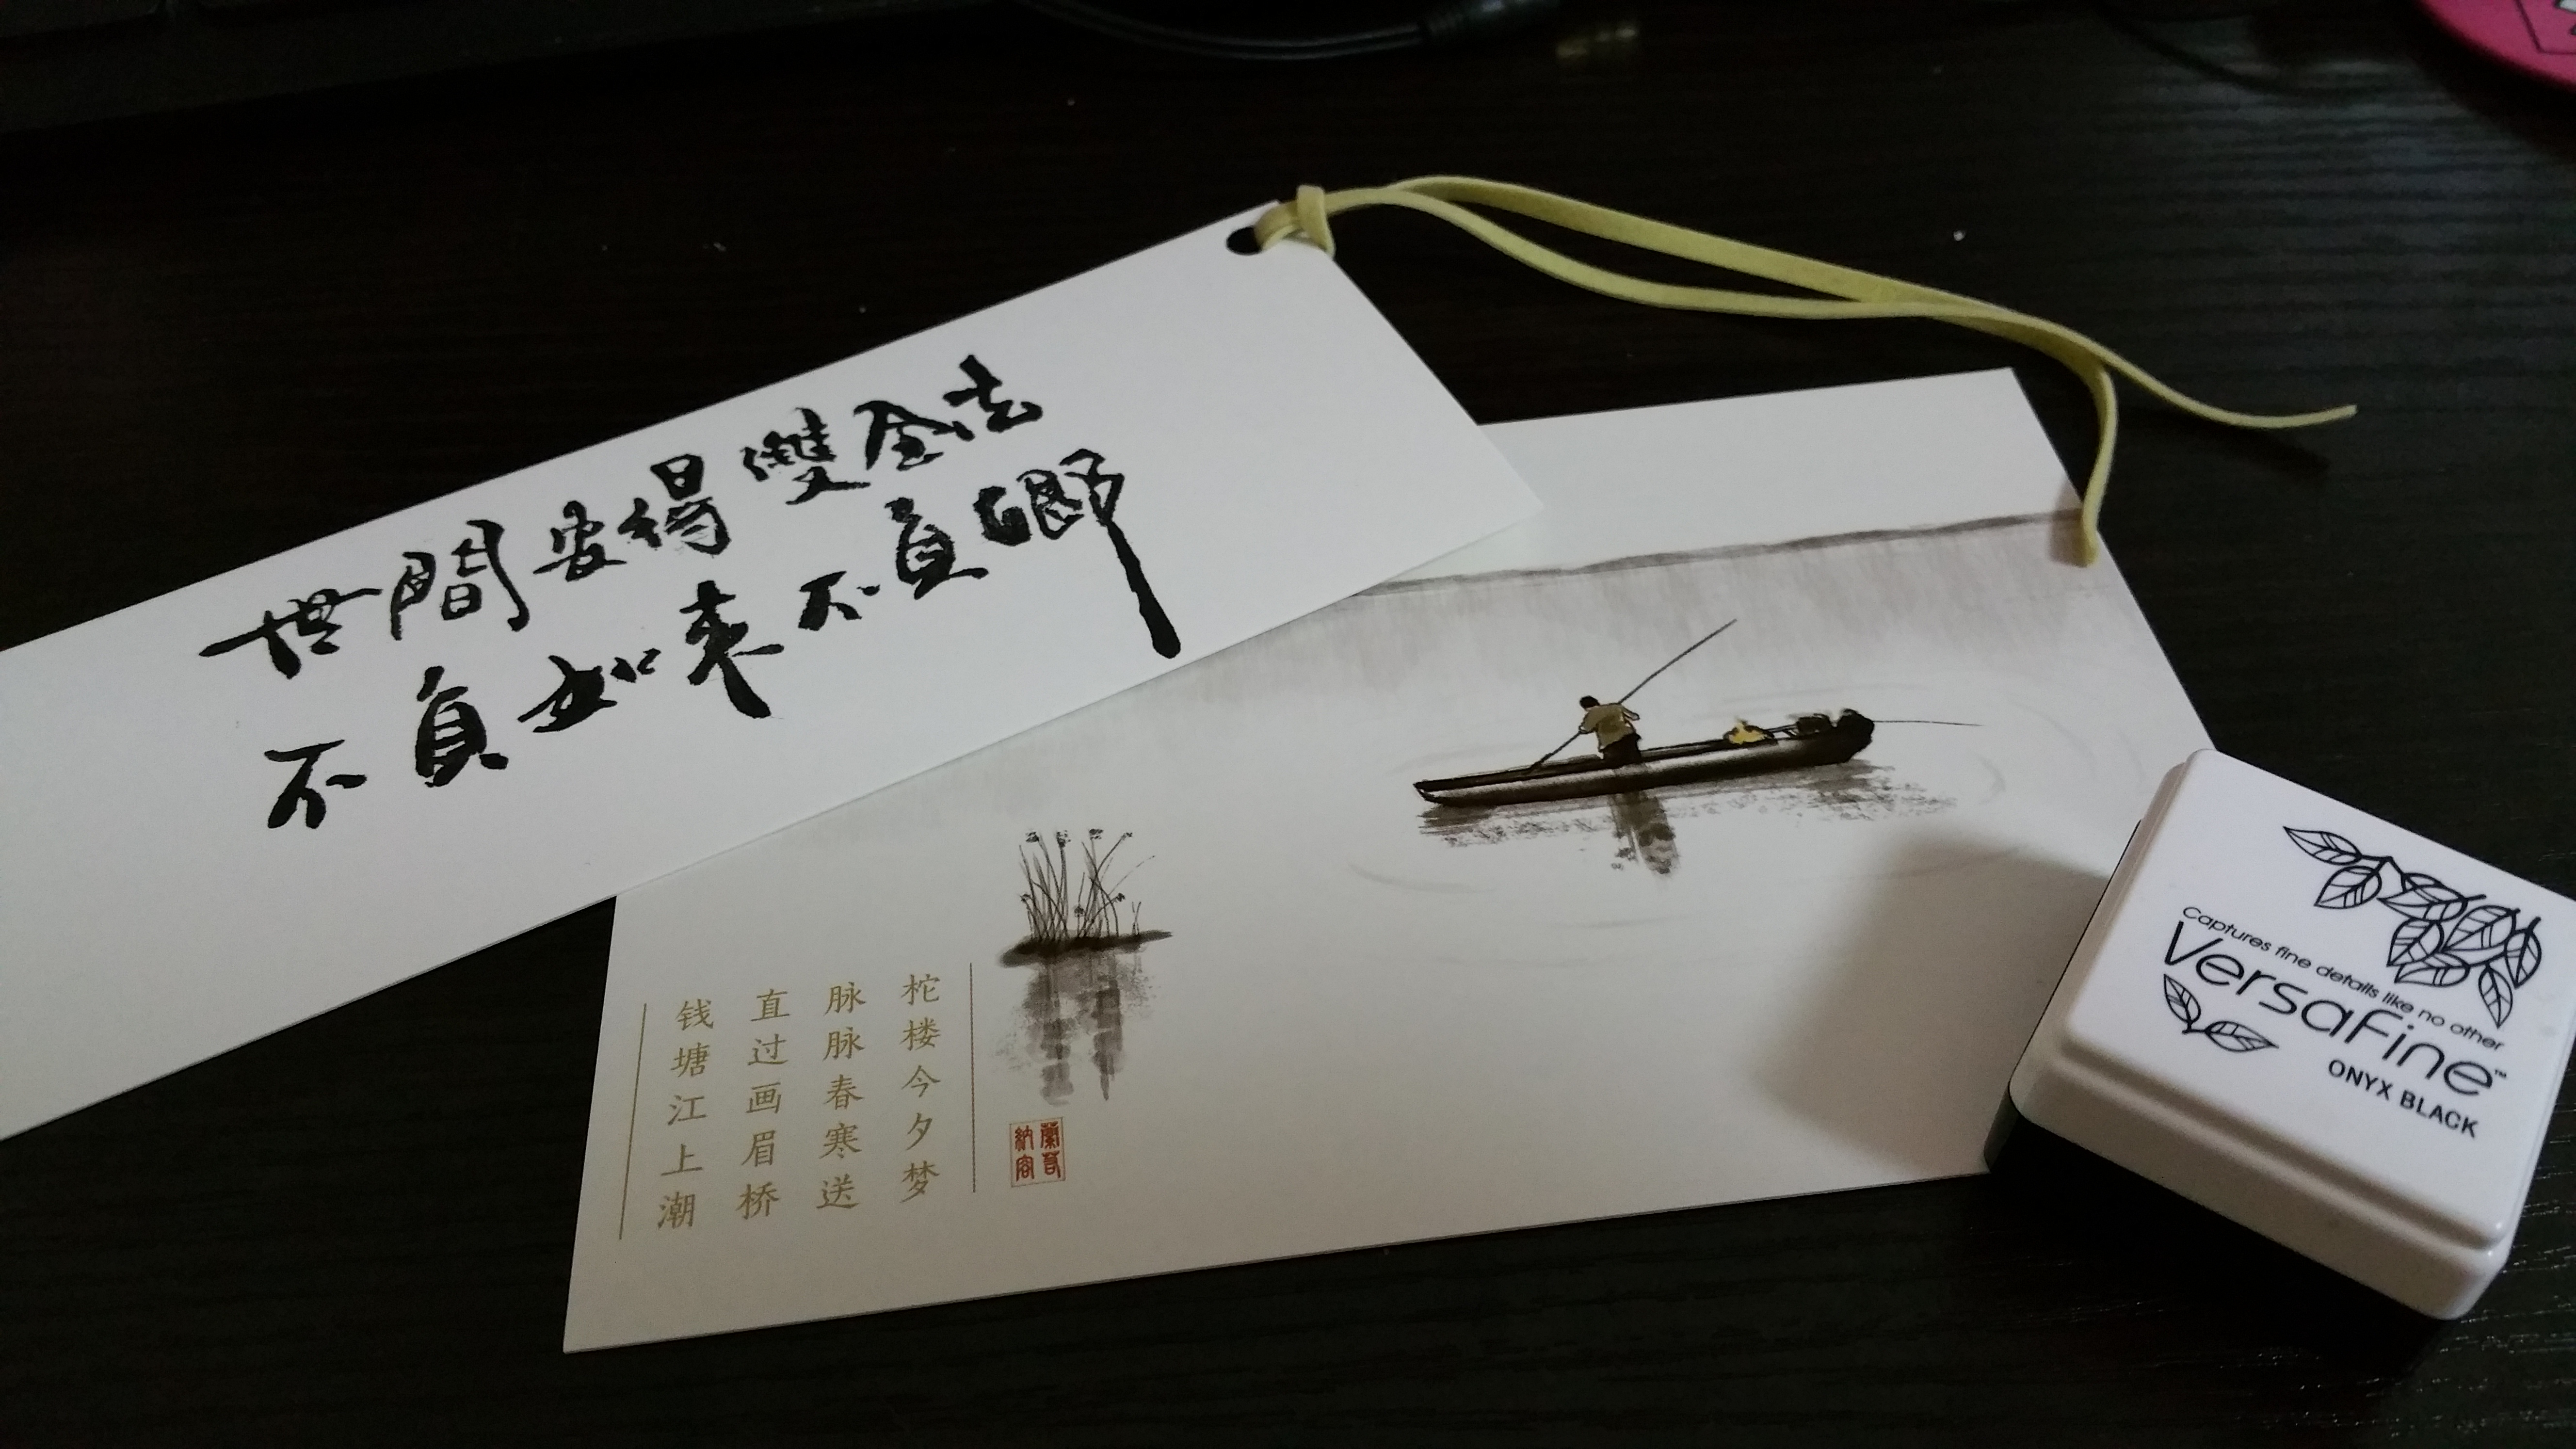 世間安得雙全法
不負如來不負卿
柁楼今夕梦
脉脉春寒送
直过画眉桥
钱塘江上潮
Captures fine details like no other
VersaFine™
ONYX BLACK